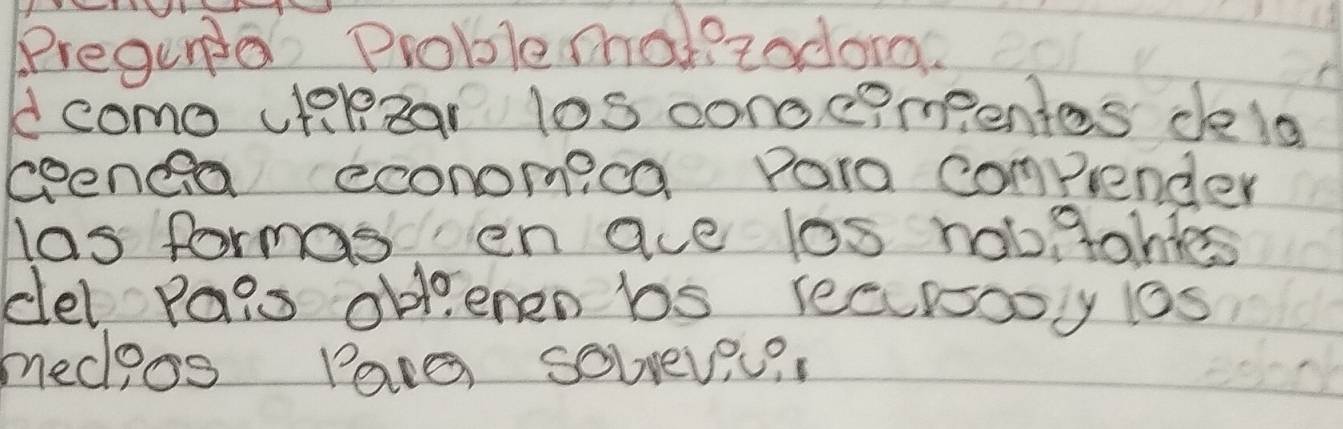 Pregunta Problematizadora.
¿como utilizar los conocimientos de la
ciencia economica Para comprender
las formas en que los habitantes
del Pais obtienen los recursos y los
medios Para sobrevivir